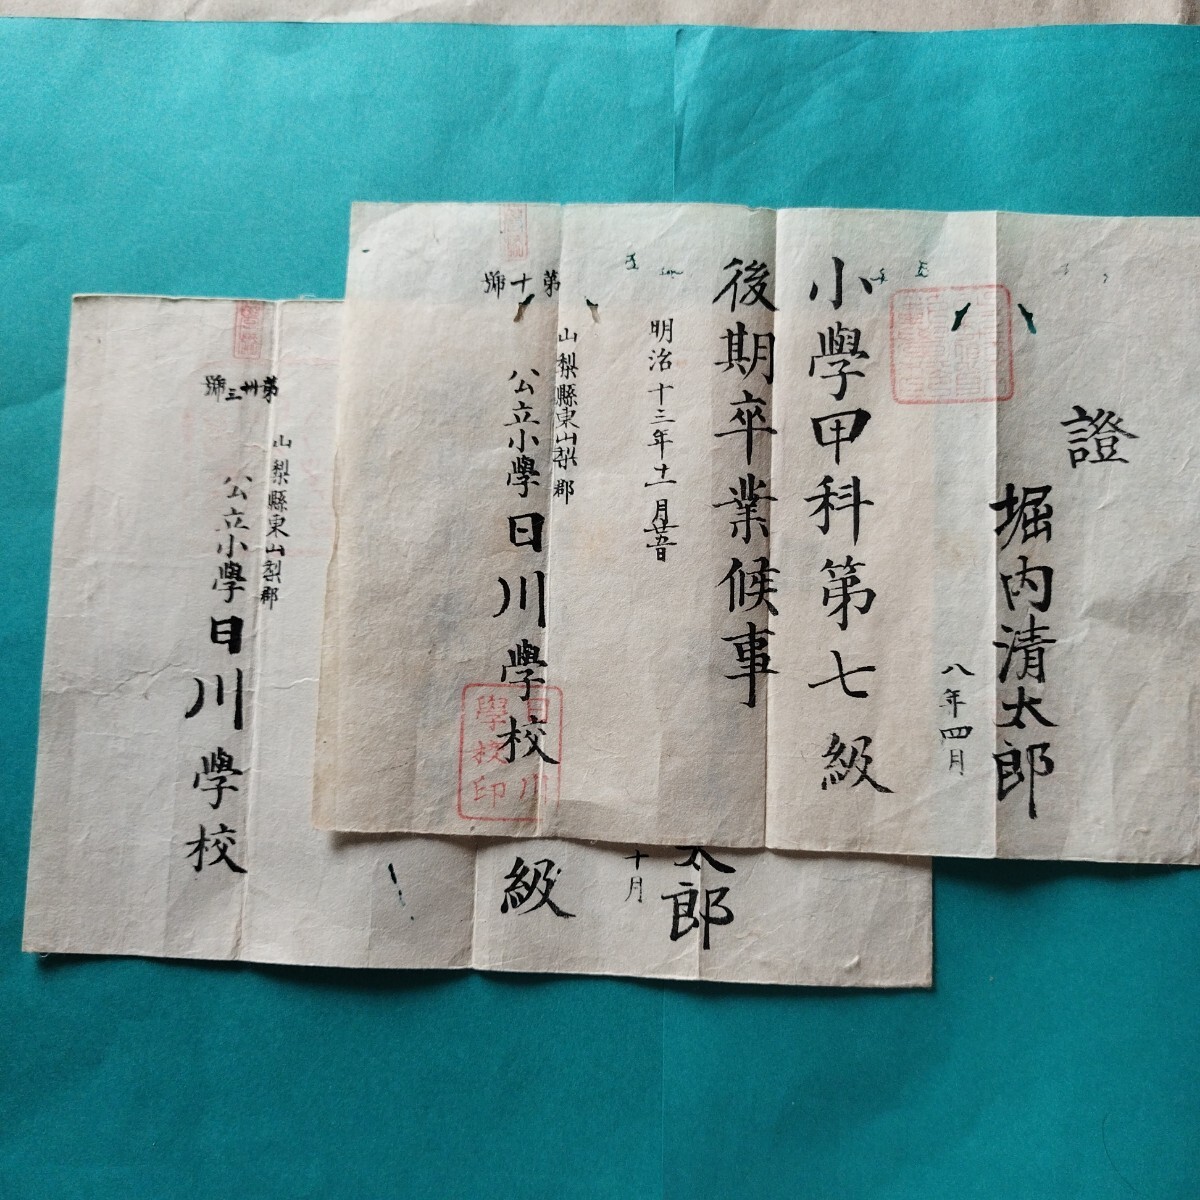 證
堀内清太郎
八年四月
小學甲科第七級
後期卒業候事
明治十三年十一月廿五日
山梨縣東山梨郡
公立小學日川學校
第十號
日川學校印
太郎
十月
級
山梨縣東山梨郡
公立小學日川學校
第卅三號